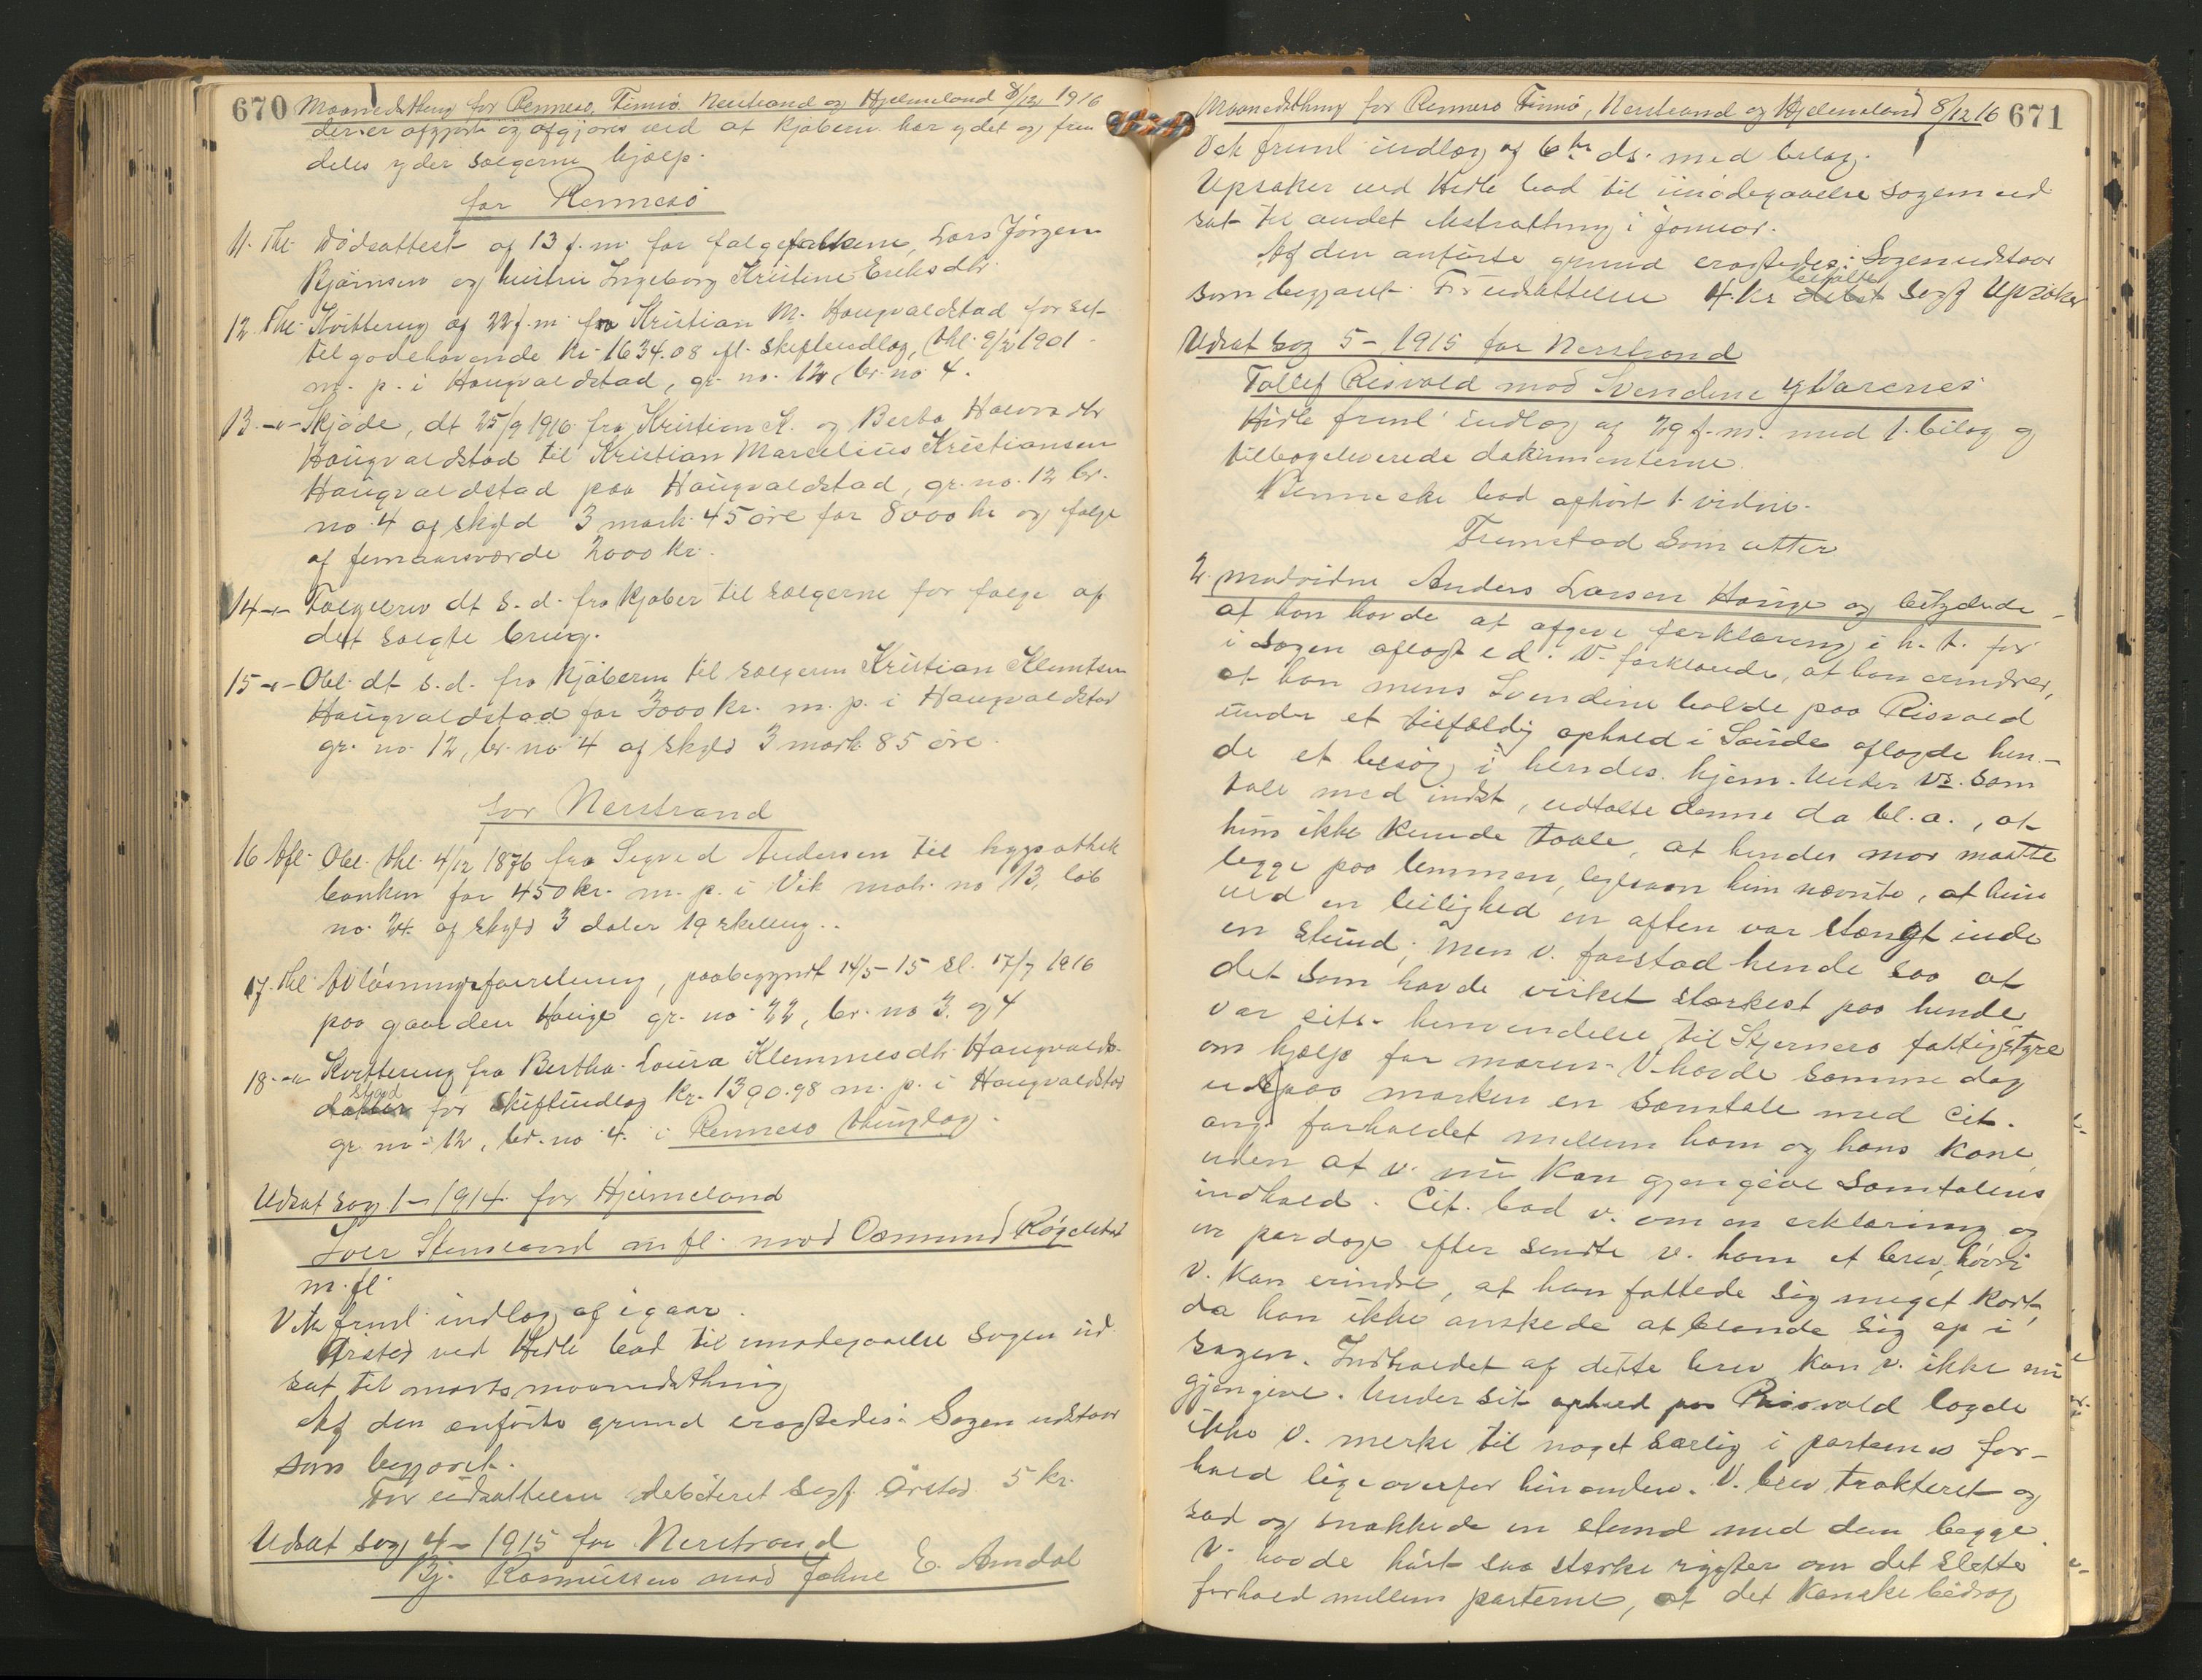 670 Maanedsthing for Rennesø, Finnø, Nerstrand og Hjelmeland 8/12 1916
der er afgjort og afgjøres ved at kjøberne har ydet og frem
deles yder sælgerne hjælp.
for Rennesø
11. Thl. Dødsattest af 13 f.m. for følgefolkene, Lars Jørgen
Bjørnsen og hustru Ingeborg Kristine Eriksdtr.
12. Thl. Kvittering af 22 f.m. fra Kristian M. Haugvaldstad for sit
tilgodehavende kr. 1634.08 ifl. skifteudlæg, thl. 9/2 1901
m. p. i Haugvaldstad, gr. no. 12, br. no 4.
13 -"- Skjøde, dt 25/9 1916 fra Kristian K. og Berta Halvorsdtr
Haugvaldstad til Kristian Marselius Kristiansen
Haugvaldstad paa Haugvaldstad, gr. no. 12 br.
no. 4 af skyld 3 mark 45 øre for 8000 kr og følge
af femaarsværde 2000 kr.
14 -"- Følgebrev dt s.d. fra kjøber til sælgerne for følge af
det solgte brug.
15 -"- Obl. dt s.d. fra kjøberen til sælgeren Kristian Klemtsen
Haugvaldstad for 3000 kr. m. p. i Haugvaldstad
gr. no 12, br. no 4 af skyld 3 mark 85 øre.
for Nerstrand
16 Afl. Obl. thl. 4/12 1876 fra Sigved Andersen til hypothek
banken for 450 kr. m. p. i Vik matr. no 13, løb
no. 24 af skyld 3 daler 19 skilling..
17. Thl. Udløsningsforretning, paabegyndt 14/5-15 sl. 17/7 1916
paa gaarden Hauge gr. no 22, br. no 3 og 4
18 -"- Kvittering fra Bertha Loura Klemmesdtr Haugvalds-
stad
datter for skifteudlæg kr. 1390.98 m. p. i Haugvaldstad
gr. no 12, br. no 4. i Rennesø thinglag.
Udsat sag 1-1914 for Hjelmeland
Iver Stensland m. fl. mod Osmund Røgelstad
m. fl.
Vek freml. indlæg af igaar.
Ørsted ved Hidle bad til imødegaaelse sagen ud
sat til marts maanedsthing
Af den anførte grund eragtedes: Sagen udstaar
som begjæret.
For udsættelsen debiteret sagf. Ørsted 5 kr.
Udsat sag 4-1915 for Nerstrand
Bj. Rasmussen mod Johne E. Amdal
Maanedsthing for Rennesø Finnø, Nerstrand og Hjelmeland 8/12 16 671
Vek freml indlæg af 6te ds. med bilag.
Upsaker ved Hidle bad til imødegaaelse sagen ud
sat til andet ekstrathing i januar.
Af den anførte grund eragtedes: Sagen udstaar
betalte
som begjært. For udsættelsen 4 kr debet sagf Upsaker
Udsat sag 5-1915 for Nerstrand
Tollef Risvold mod Svendine Y Varenes
Hidle freml indlæg af 29 f.m. med 1 bilag og
tilbageleverede dokumenterne.
Benneche bad afhørt 1 vidne.
Fremstod som atter
2. modvidne Anders Larsen Hauge og betydede
at han havde at afgive forklaring i h. t. før
i sagen aflagt ed. V. forklarede, at han erindrer,
at han mens Svendine boede paa Risvold
under et tilfældig ophold i Sande aflagde hen-
de et besøg i hendes hjem. Under vs. sam
tale med indst, udtalte denne da bl. a., at
hun ikke kunde taale, at hendes mor maatte
ligge paa lemmen, ligesom hun nævnte, at hun
ved en leilighed en aften var stængt inde
en stund; men v. forstod hende saa at
det som havde virket stærkest paa hende
var cits. henvendelse til Stjernerø fattigstyre
om hjælp for moren. V. havde samme dag
ude paa marken en samtale med cit.
ang. forholdet mellem ham og hans kone,
uden at v. nu kan gjengive samtalens
indhold. Cit. bad v. om en erklæring og
et par dage efter sendte v. ham et brev, hvori
v. kan erindre, at han fattede sig meget kort,
da han ikke ønskede at blande sig op i
sagen. Indholdet af dette brev kan v. ikke nu
gjengive. Under sit ophold paa Risvold lagde
ikke v. merke til noget særlig i parternes for-
hold ligeoverfor hinanden. V. blev trakteret og
sad og snakkede en stund med dem begge.
V. havde hørt saa stærke rygter om det slette
forhold mellem parterne, at det kanske bidrog